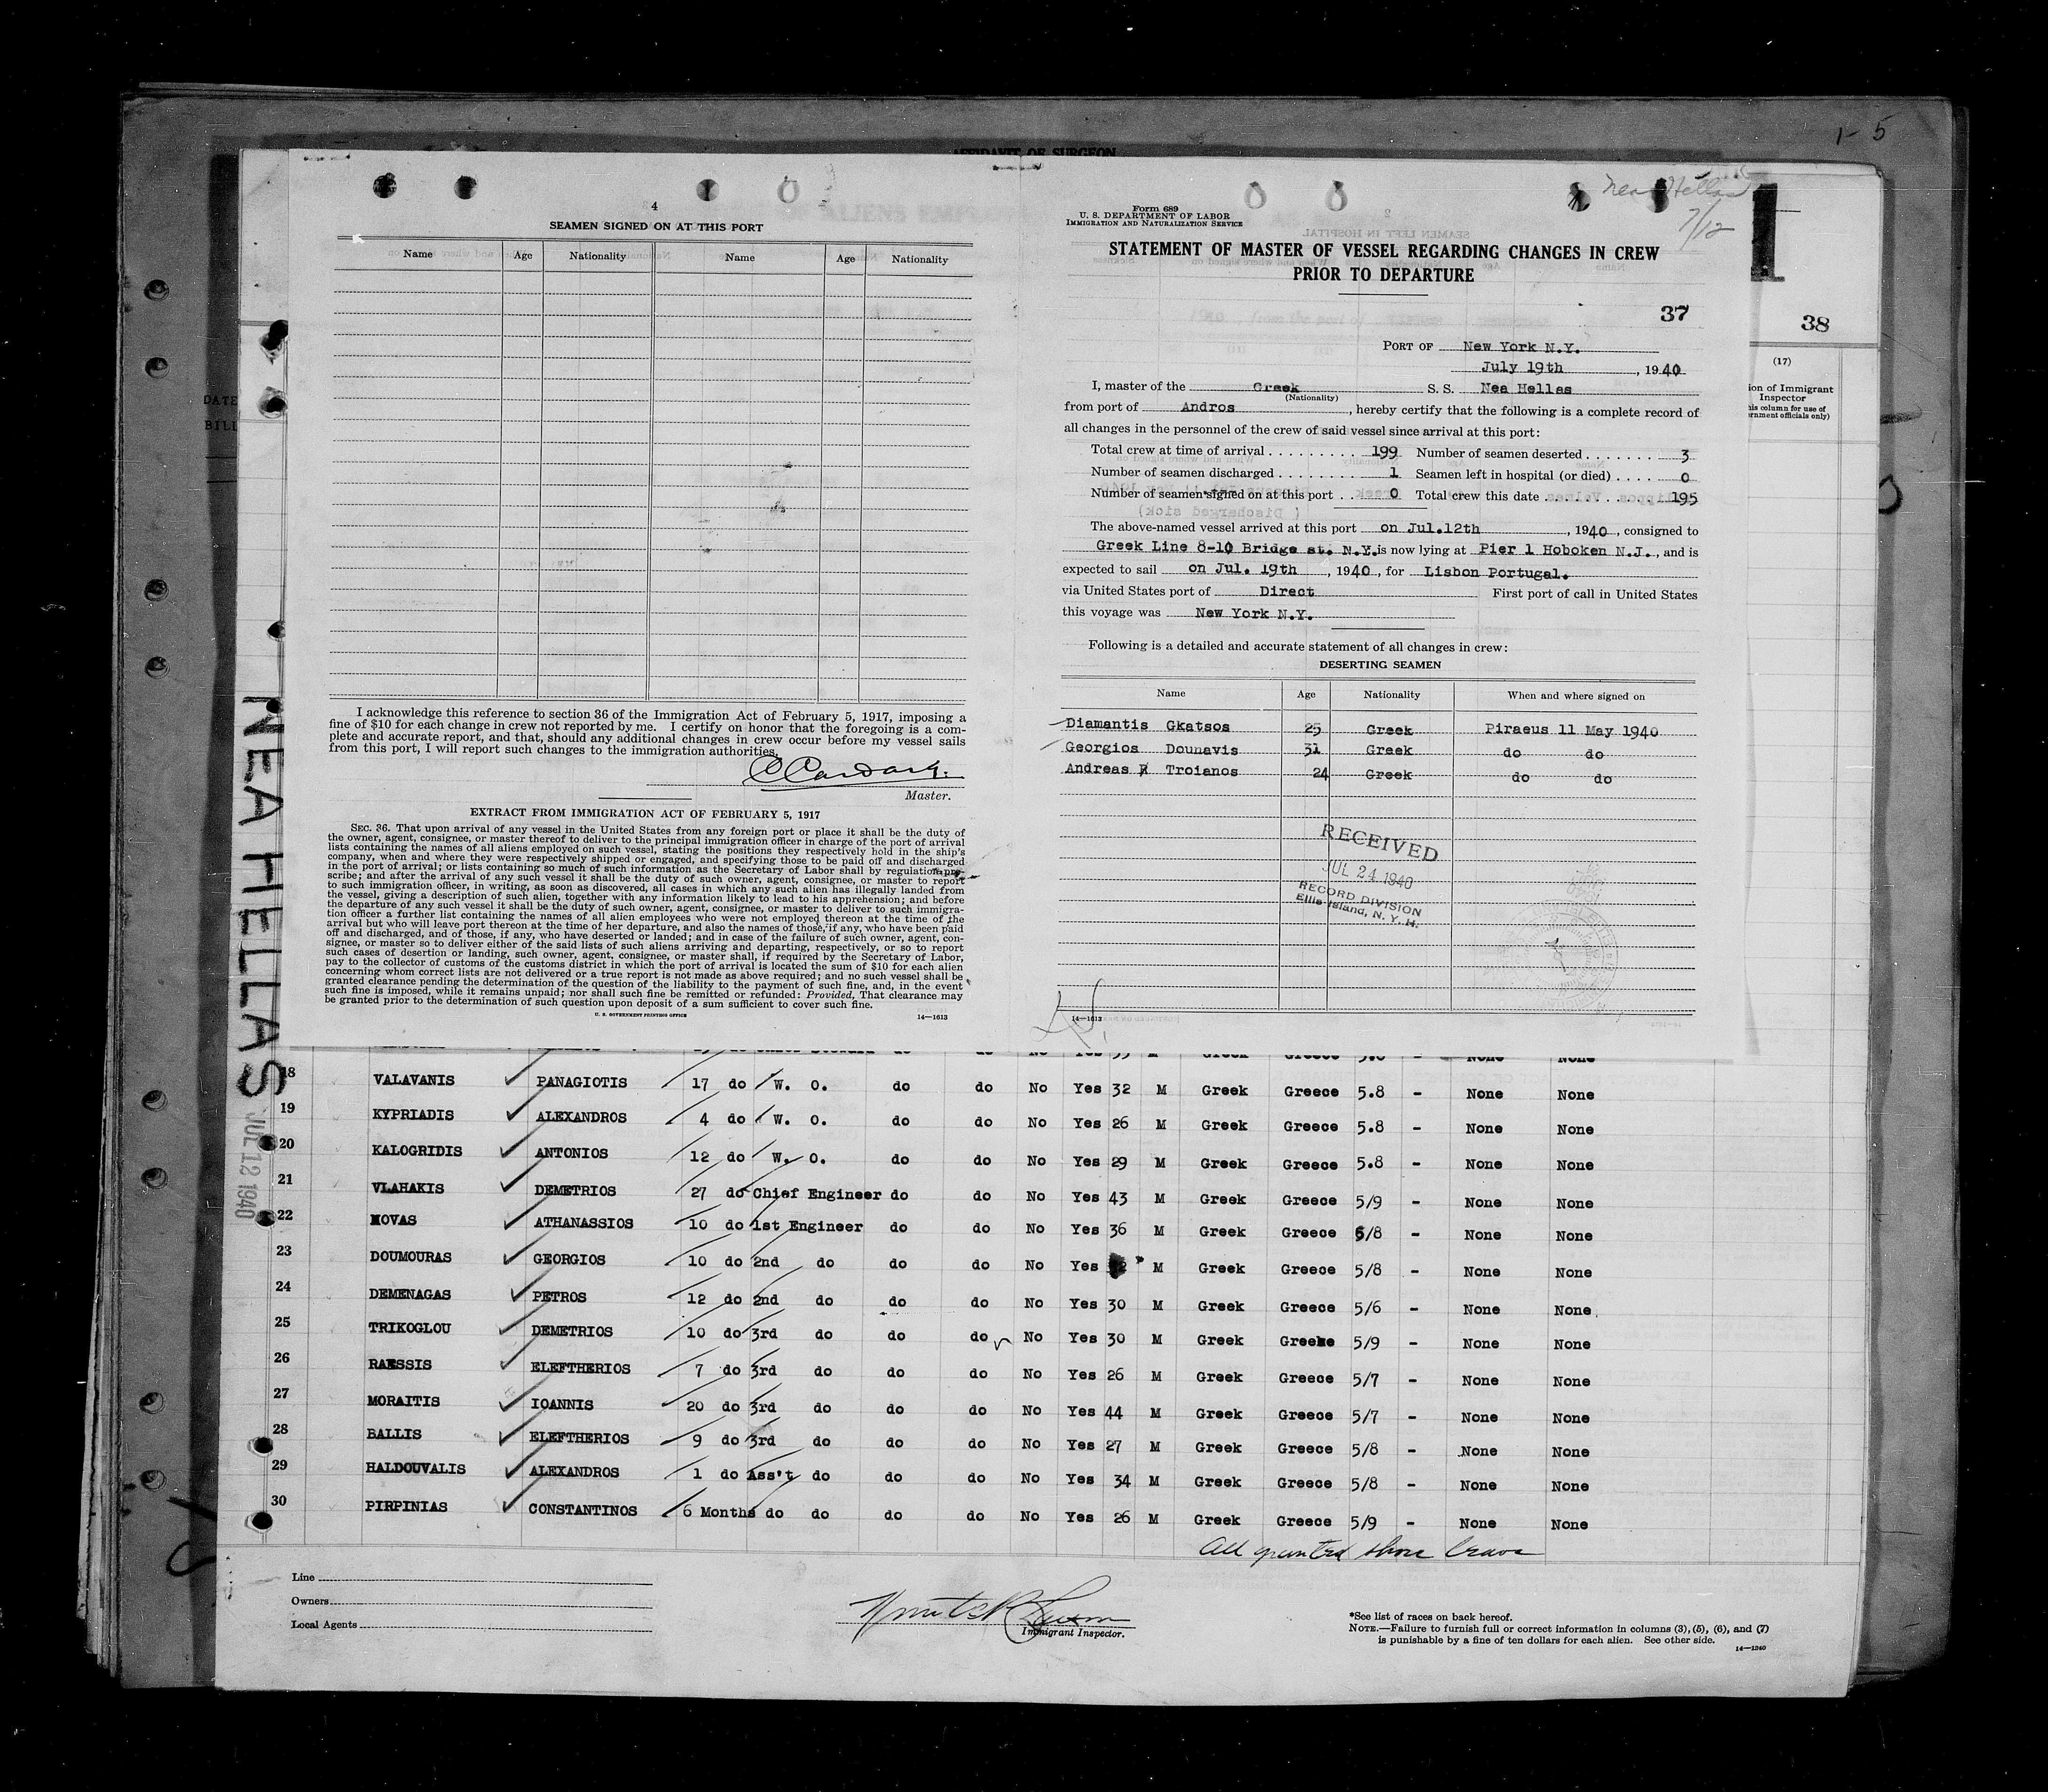 1- 5
AFFIDAVIT OF SURGEON
Nea Hellas
7/12
4
SEAMEN SIGNED ON AT THIS PORT
Name Age Nationality Name Age Nationality
I acknowledge this reference to section 36 of the Immigration Act of February 5, 1917, imposing a
fine of $10 for each change in crew not reported by me. I certify on honor that the foregoing is a com-
plete and accurate report, and that, should any additional changes in crew occur before my vessel sails
from this port, I will report such changes to the immigration authorities.
Master.
EXTRACT FROM IMMIGRATION ACT OF FEBRUARY 5, 1917
SEC. 36. That upon arrival of any vessel in the United States from any foreign port or place it shall be the duty of
the owner, agent, consignee, or master thereof to deliver to the principal immigration officer in charge of the port of arrival
lists containing the names of all aliens employed on such vessel, stating the positions they respectively hold in the ship's
company, when and where they were respectively shipped or engaged, and specifying those to be paid off and discharged
in the port of arrival; or lists containing so much of such information as the Secretary of Labor shall by regulation pre-
scribe; and after the arrival of any such vessel it shall be the duty of such owner, agent, consignee, or master to report
to such immigration officer, in writing, as soon as discovered, all cases in which any such alien has illegally landed from
the vessel, giving a description of such alien, together with any information likely to lead to his apprehension; and before
the departure of any such vessel it shall be the duty of such owner, agent, consignee, or master to deliver to such immigra-
tion officer a further list containing the names of all alien employees who were not employed thereon at the time of the
arrival but who will leave port thereon at the time of her departure, and also the names of those, if any, who have been paid
off and discharged, and of those, if any, who have deserted or landed; and in case of the failure of such owner, agent, con-
signee, or master so to deliver either of the said lists of such aliens arriving and departing, respectively, or so to report
such cases of desertion or landing, such owner, agent, consignee, or master shall, if required by the Secretary of Labor,
pay to the collector of customs of the customs district in which the port of arrival is located the sum of $10 for each alien
concerning whom correct lists are not delivered or a true report is not made as above required; and no such vessel shall be
granted clearance pending the determination of the question of the liability to the payment of such fine, and, in the event
such fine is imposed, while it remains unpaid; nor shall such fine be remitted or refunded: Provided, That clearance may
be granted prior to the determination of such question upon deposit of a sum sufficient to cover such fine.
U. S. GOVERNMENT PRINTING OFFICE 14—1613
Form 689
U. S. DEPARTMENT OF LABOR
IMMIGRATION AND NATURALIZATION SERVICE
STATEMENT OF MASTER OF VESSEL REGARDING CHANGES IN CREW
PRIOR TO DEPARTURE
37
PORT OF New York N.Y.
July 19th , 1940
I, master of the Greek S. S. Nea Hellas
(Nationality)
from port of Andros , hereby certify that the following is a complete record of
all changes in the personnel of the crew of said vessel since arrival at this port:
Total crew at time of arrival . . . . . . . . . 199 Number of seamen deserted . . . . . . . 3
Number of seamen discharged . . . . . . . 1 Seamen left in hospital (or died) . . . . 0
Number of seamen signed on at this port . . 0 Total crew this date . . . . . . . . . . 195
The above-named vessel arrived at this port on Jul.12th , 1940, consigned to
Greek Line 8-10 Bridge st. N.Y. is now lying at Pier 1 Hoboken N.J., and is
expected to sail on Jul. 19th , 1940, for Lisbon Portugal.
via United States port of Direct First port of call in United States
this voyage was New York N.Y.
Following is a detailed and accurate statement of all changes in crew:
DESERTING SEAMEN
Name Age Nationality When and where signed on
Diamantis Gkatsos 25 Greek Piraeus 11 May 1940
Georgios Dounavis 31 Greek do do
Andreas Troianos 24 Greek do do
RECEIVED
JUL 24 1940
RECORD DIVISION
Ellis Island, N. Y. H.
14—1613
38
(17)
ion of Immigrant
Inspector
his column for use of
ernment officials only)
DATE
BILL
NEA HELLAS
JUL 12 1940
18 VALAVANIS PANAGIOTIS 17 do W. O. do do No Yes 32 M Greek Greece 5.8 - None None
19 KYPRIADIS ALEXANDROS 4 do W. O. do do No Yes 26 M Greek Greece 5.8 - None None
20 KALOGRIDIS ANTONIOS 12 do W. O. do do No Yes 29 M Greek Greece 5.8 - None None
21 VLAHAKIS DEMETRIOS 27 do Chief Engineer do do No Yes 43 M Greek Greece 5/9 - None None
22 MOVAS ATHANASSIOS 10 do 1st Engineer do do No Yes 36 M Greek Greece 5/8 - None None
23 DOUMOURAS GEORGIOS 10 do 2nd do do do No Yes M Greek Greece 5/8 - None None
24 DEMENAGAS PETROS 12 do 2nd do do do No Yes 30 M Greek Greece 5/6 - None None
25 TRIKOGLOU DEMETRIOS 10 do 3rd do do do No Yes 30 M Greek Greece 5/9 - None None
26 RAESSIS ELEFTHERIOS 7 do 3rd do do do No Yes 26 M Greek Greece 5/7 - None None
27 MORAITIS IOANNIS 20 do 3rd do do do No Yes 44 M Greek Greece 5/7 - None None
28 BALLIS ELEFTHERIOS 9 do 3rd do do do No Yes 27 M Greek Greece 5/8 - None None
29 HALDOUVALIS ALEXANDROS 1 do Ass't do do do No Yes 34 M Greek Greece 5/8 - None None
30 PIRPINIAS CONSTANTINOS 6 Months do do do do No Yes 26 M Greek Greece 5/9 - None None
All granted shore leave
Line
Owners
Local Agents
Immigrant Inspector.
*See list of races on back hereof.
NOTE.—Failure to furnish full or correct information in columns (3), (5), (6), and (7)
is punishable by a fine of ten dollars for each alien. See other side.
14—1240